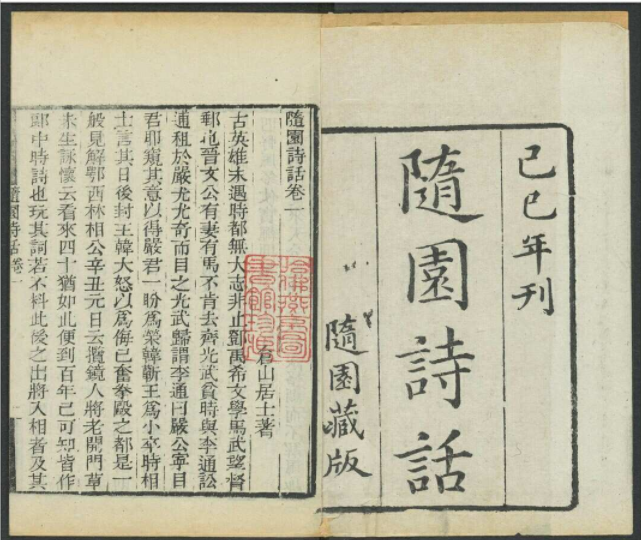 己巳年刊
隨園詩話
隨園藏版
隨園詩話卷一
倉山居士著
古英雄未遇時都無大志非止鄧禹希文學馬武望督
郵也晉文公有妻有馬不肯去齊光武貧時與李通訟
逋租於嚴尤尤奇而目之光武歸謂李通曰嚴公寧目
君耶窺其意以得嚴君一盼爲榮韓蘄王爲小卒時相
士言其日後封王韓大怒以爲侮己奮拳毆之都是一
般見解鄂西林相公辛丑元日云攬鏡人將老開門草
未生詠懷云看來四十猶如此便到百年已可知皆作
郎中時詩也玩其詞若不料此後之出將入相者及其
隨園詩話卷一